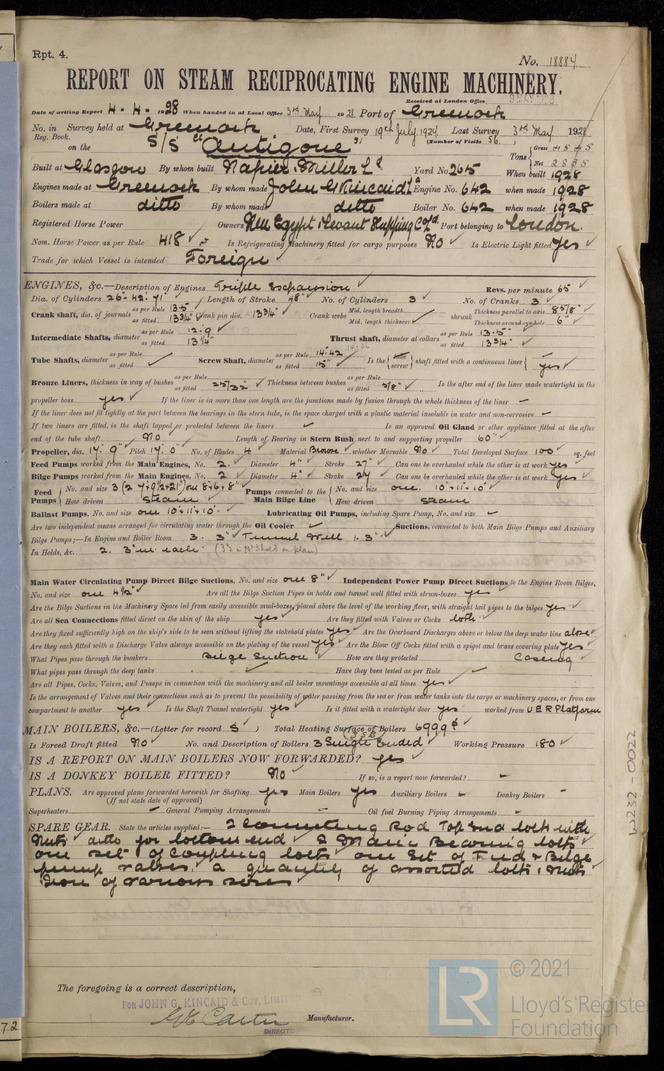 Rpt. 4.
No. 18884
REPORT ON STEAM RECIPROCATING ENGINE MACHINERY.
Received at London Office
Date of writing Report 4-4-1928 When handed in at Local Office 3rd May 1928 Port of Greenock
No. in Survey held at Greenock Date, First Survey 19th July, 1927 Last Survey 3rd May 1928
Reg. Book. (Number of Visits 56.)
on the S/S "Antigone" Tons { Gross 4545 Net 2885
Built at Glasgow By whom built Napier & Miller Ld Yard No 265 When built 1928
Engines made at Greenock By whom made John G Kincaid Engine No. 642 when made 1928
Boilers made at ditto By whom made ditto Boiler No. 642 when made 1928
Registered Horse Power Owners New Egypt & Levant Shipping Co Ld Port belonging to London
Nom. Horse Power as per Rule 418 Is Refrigerating Machinery fitted for cargo purposes No Is Electric Light fitted Yes
Trade for which Vessel is intended Foreign
ENGINES, &c.—Description of Engines Triple Expansion Revs. per minute 65
Dia. of Cylinders 26-42-71" Length of Stroke 48" No. of Cylinders 3 No. of Cranks 3
Crank shaft, dia. of journals as per Rule 13.5 as fitted 13 3/4" Crank pin dia. 13 3/4" Crank webs Mid. length breadth Mid. length thickness shrunk Thickness parallel to axis 8 5/8" Thickness around eyehole 6"
Intermediate Shafts, diameter as per Rule 12.9 as fitted 13 1/4" Thrust shaft, diameter at collars as per Rule 13.5" as fitted 13 3/4"
Tube Shafts, diameter as per Rule as fitted Screw Shaft, diameter as per Rule 14.42 as fitted 15" Is the { screw } shaft fitted with a continuous liner { yes
Bronze Liners, thickness in way of bushes as per Rule as fitted 25/32" Thickness between bushes as per Rule as fitted 5/8" Is the after end of the liner made watertight in the
propeller boss yes If the liner is in more than one length are the junctions made by fusion through the whole thickness of the liner –
If the liner does not fit tightly at the part between the bearings in the stern tube, is the space charged with a plastic material insoluble in water and non-corrosive –
If two liners are fitted, is the shaft lapped or protected between the liners Is an approved Oil Gland or other appliance fitted at the after
end of the tube shaft No Length of Bearing in Stern Bush next to and supporting propeller 60"
Propeller, dia. 17'.9" Pitch 17'.0" No. of Blades 4 Material Bronze whether Moveable No Total Developed Surface 100 sq. feet
Feed Pumps worked from the Main Engines, No. 2 Diameter 4" Stroke 27" Can one be overhauled while the other is at work yes
Bilge Pumps worked from the Main Engines, No. 2 Diameter 4" Stroke 27 Can one be overhauled while the other is at work Yes
Feed Pumps { No. and size How driven steam Pumps connected to the Main Bilge Line { No. and size one 10" 11" 10" How driven steam
Ballast Pumps, No. and size one 10" 11" 10" Lubricating Oil Pumps, including Spare Pump, No. and size –
Are two independent means arranged for circulating water through the Oil Cooler Suctions, connected to both Main Bilge Pumps and Auxiliary
Bilge Pumps;—In Engine and Boiler Room 3. 3" Tunnel Well 1. 3"
In Holds, &c. 2. 3" in each
Main Water Circulating Pump Direct Bilge Suctions, No. and size one 8" Independent Power Pump Direct Suctions to the Engine Room Bilges,
No. and size one 4 1/2" Are all the Bilge Suction Pipes in holds and tunnel well fitted with strum-boxes yes
Are the Bilge Suctions in the Machinery Space led from easily accessible mud-boxes, placed above the level of the working floor, with straight tail pipes to the bilges yes
Are all Sea Connections fitted direct on the skin of the ship yes Are they fitted with Valves or Cocks both
Are they fixed sufficiently high on the ship's side to be seen without lifting the stokehold plates yes Are the Overboard Discharges above or below the deep water line above
Are they each fitted with a Discharge Valve always accessible on the plating of the vessel yes Are the Blow Off Cocks fitted with a spigot and brass covering plate yes
What Pipes pass through the bunkers Bilge Suction How are they protected Casing
What pipes pass through the deep tanks Have they been tested as per Rule
Are all Pipes, Cocks, Valves, and Pumps in connection with the machinery and all boiler mountings accessible at all times yes
Is the arrangement of Valves and their connections such as to prevent the possibility of water passing from the sea or from water tanks into the cargo or machinery spaces, or from one
compartment to another yes Is the Shaft Tunnel watertight yes Is it fitted with a watertight door yes worked from U E R Platform
MAIN BOILERS, &c.—(Letter for record S ) Total Heating Surface of Boilers 6999
Is Forced Draft fitted No No. and Description of Boilers 3 Single Ended Working Pressure 180
IS A REPORT ON MAIN BOILERS NOW FORWARDED? yes
IS A DONKEY BOILER FITTED? No If so, is a report now forwarded? –
PLANS. Are approved plans forwarded herewith for Shafting yes Main Boilers yes Auxiliary Boilers – Donkey Boilers –
(If not state date of approval)
Superheaters – General Pumping Arrangements – Oil fuel Burning Piping Arrangements –
SPARE GEAR. State the articles supplied:— 2 Connecting Rod Top End bolts with
Nuts ditto for bottom end 2 Main Bearing bolts
one set of Coupling bolts one Set of Feed & Bilge
pump valves a quantity of assorted bolts & Nuts
Iron of various sizes
The foregoing is a correct description,
FOR JOHN G. KINCAID & COY. LIMITED
Manufacturer.
DIRECTOR
W232-0022
72
LR
© 2021
Lloyd's Register
Foundation